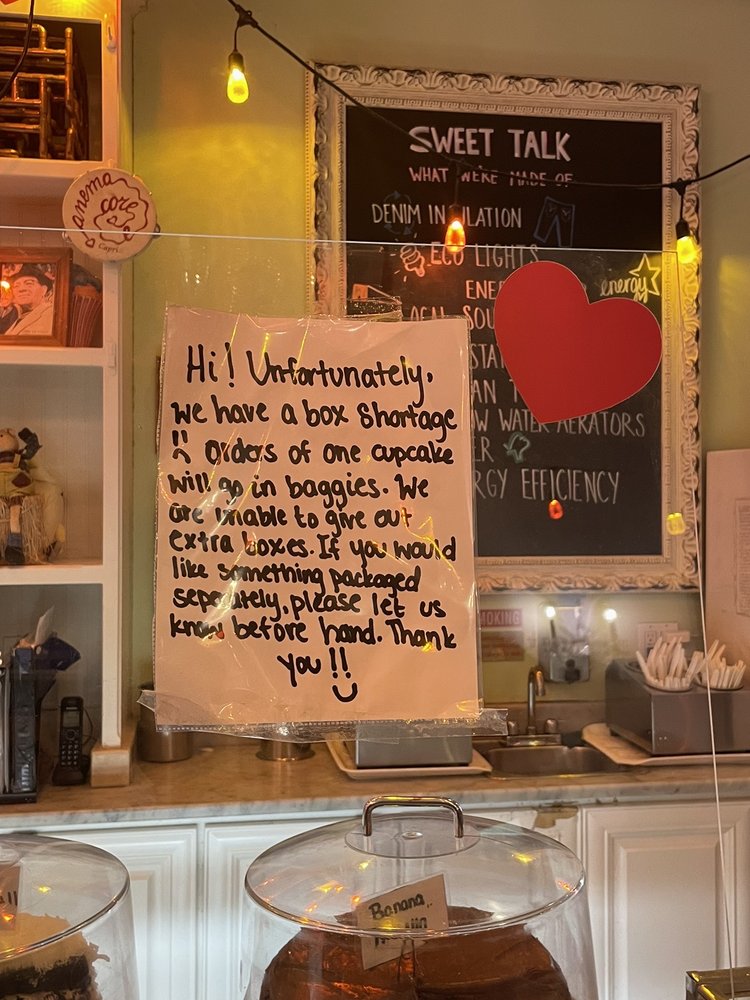 SWEET TALK
WHAT WE'RE MADE OF
DENIM INSULATION
ECO LIGHTS
energy
LOW WATER AERATORS
ENERGY EFFICIENCY
anema
core
Capri
Hi! Unfortunately,
we have a box shortage
:( orders of one cupcake
will go in baggies. We
are unable to give out
extra boxes. If you would
like something packaged
separately, please let us
know before hand. Thank
you!!
SMOKING
Banana